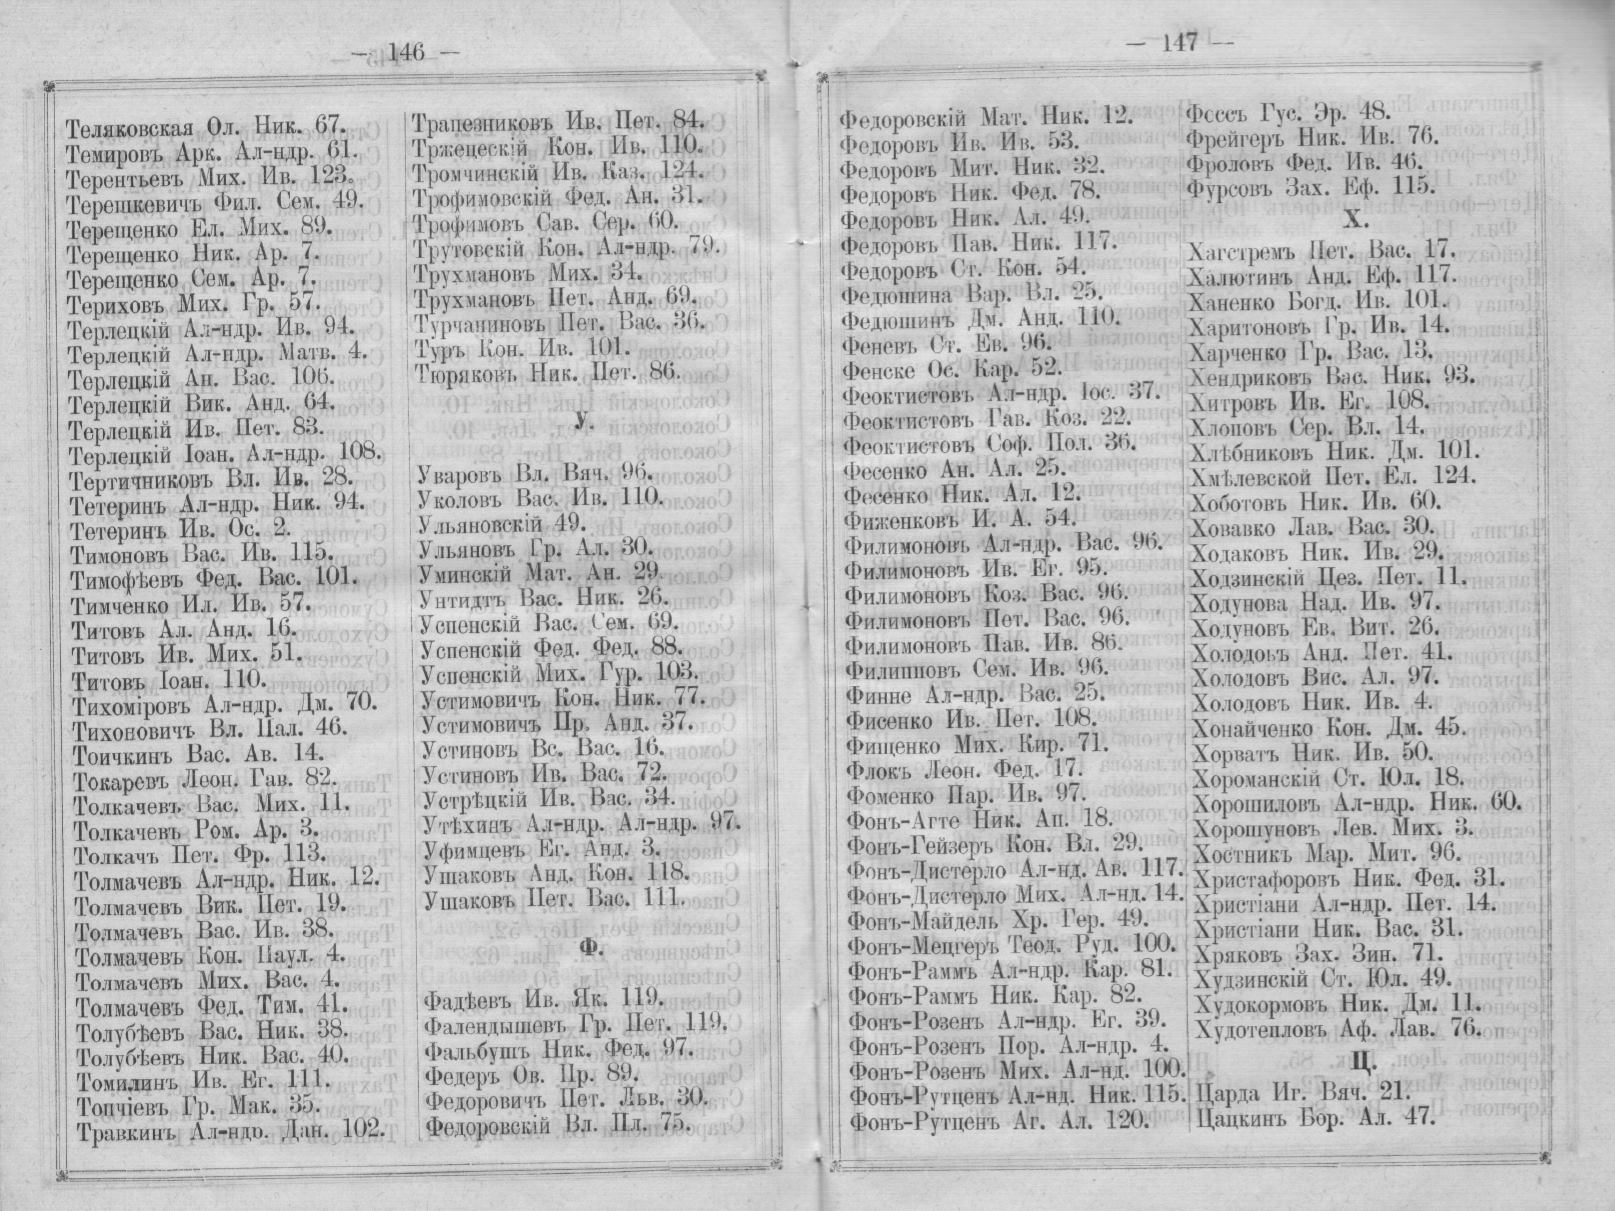 — 146 —
Теляковская Ол. Ник. 67.
Темировъ Арк. Ал-ндр. 61.
Терентьевъ Мих. Ив. 123.
Терешкевичъ Фил. Сем. 49.
Терещенко Ел. Мих. 89.
Терещенко Ник. Ар. 7.
Терещенко Сем. Ар. 7.
Териховъ Мих. Гр. 57.
Терлецкій Ал-ндр. Ив. 94.
Терлецкій Ал-ндр. Матв. 4.
Терлецкій Ан. Вас. 106.
Терлецкій Вик. Анд. 64.
Терлецкій Ив. Пет. 83.
Терлецкій Іоан. Ал-ндр. 108.
Тертичниковъ Вл. Ив. 28.
Тетеринъ Ал-ндр. Ник. 94.
Тетеринъ Ив. Ос. 2.
Тимоновъ Вас. Ив. 115.
Тимофѣевъ Фед. Вас. 101.
Тимченко Ил. Ив. 57.
Титовъ Ал. Анд. 16.
Титовъ Ив. Мих. 51.
Титовъ Іоан. 110.
Тихоміровъ Ал-ндр. Дм. 70.
Тихоновичъ Вл. Пал. 46.
Тоичкинъ Вас. Ав. 14.
Токаревъ Леон. Гав. 82.
Толкачевъ Вас. Мих. 11.
Толкачевъ Ром. Ар. 3.
Толкачъ Пет. Фр. 113.
Толмачевъ Ал-ндр. Ник. 12.
Толмачевъ Вик. Пет. 19.
Толмачевъ Вас. Ив. 38.
Толмачевъ Кон. Паул. 4.
Толмачевъ Мих. Вас. 4.
Толмачевъ Фед. Тим. 41.
Толубѣевъ Вас. Ник. 38.
Толубѣевъ Ник. Вас. 40.
Томилинъ Ив. Ег. 111.
Топчіевъ Гр. Мак. 35.
Травкинъ Ал-ндр. Дан. 102.
Трапезниковъ Ив. Пет. 84.
Тржецескій Кон. Ив. 110.
Тромчинскій Ив. Каз. 124.
Трофимовскій Фед. Ан. 31.
Трофимовъ Сав. Сер. 60.
Трутовскій Кон. Ал-ндр. 79.
Трухмановъ Мих. 34.
Трухмановъ Пет. Анд. 69.
Турчаниновъ Пет. Вас. 36.
Туръ Кон. Ив. 101.
Тюряковъ Ник. Пет. 86.
У.
Уваровъ Вл. Вяч. 96.
Уколовъ Вас. Ив. 110.
Ульяновскій 49.
Ульяновъ Гр. Ал. 30.
Уминскій Мат. Ан. 29.
Унтидтъ Вас. Ник. 26.
Успенскій Вас. Сем. 69.
Успенскій Фед. Фед. 88.
Успенскій Мих. Гур. 103.
Устимовичъ Кон. Ник. 77.
Устимовичъ Пр. Анд. 37.
Устиновъ Вс. Вас. 16.
Устиновъ Ив. Вас. 72.
Устрѣцкій Ив. Вас. 34.
Утѣхинъ Ал-ндр. Ал-ндр. 97.
Уфимцевъ Ег. Анд. 3.
Ушаковъ Анд. Кон. 118.
Ушаковъ Пет. Вас. 111.
Ф.
Фадѣевъ Ив. Як. 119.
Фалендышевъ Гр. Пет. 119.
Фальбушъ Ник. Фед. 97.
Федеръ Ов. Пр. 89.
Федоровичъ Пет. Льв. 30.
Федоровскій Вл. Пл. 75.
— 147 —
Федоровскій Мат. Ник. 12.
Федоровъ Ив. Ив. 53.
Федоровъ Мит. Ник. 32.
Федоровъ Ник. Фед. 78.
Федоровъ Ник. Ал. 49.
Федоровъ Пав. Ник. 117.
Федоровъ Ст. Кон. 54.
Федюшина Вар. Вл. 25.
Федюшинъ Дм. Анд. 110.
Феневъ Ст. Ев. 96.
Фенске Ос. Кар. 52.
Феоктистовъ Ал-ндр. Іос. 37.
Феоктистовъ Гав. Коз. 22.
Феоктистовъ Соф. Пол. 36.
Фесенко Ан. Ал. 25.
Фесенко Ник. Ал. 12.
Фиженковъ И. А. 54.
Филимоновъ Ал-ндр. Вас. 96.
Филимоновъ Ив. Ег. 95.
Филимоновъ Коз. Вас. 96.
Филимоновъ Пет. Вас. 96.
Филимоновъ Пав. Ив. 86.
Филипповъ Сем. Ив. 96.
Финне Ал-ндр. Вас. 25.
Фисенко Ив. Пет. 108.
Фищенко Мих. Кир. 71.
Флокъ Леон. Фед. 17.
Фоменко Пар. Ив. 97.
Фонъ-Агте Ник. Ап. 18.
Фонъ-Гейзеръ Кон. Вл. 29.
Фонъ-Дистерло Ал-нд. Ав. 117.
Фонъ-Дистерло Мих. Ал-нд. 14.
Фонъ-Майдель Хр. Гер. 49.
Фонъ-Мецгеръ Теод. Руд. 100.
Фонъ-Раммъ Ал-ндр. Кар. 81.
Фонъ-Раммъ Ник. Кар. 82.
Фонъ-Розенъ Ал-ндр. Ег. 39.
Фонъ-Розенъ Пор. Ал-ндр. 4.
Фонъ-Розенъ Мих. Ал-нд. 100.
Фонъ-Рутценъ Ал-нд. Ник. 115.
Фонъ-Рутценъ Аг. Ал. 120.
Фессъ Гус. Эр. 48.
Фрейгеръ Ник. Ив. 76.
Фроловъ Фед. Ив. 46.
Фурсовъ Зах. Еф. 115.
Х.
Хагстремъ Пет. Вас. 17.
Халютинъ Анд. Еф. 117.
Ханенко Богд. Ив. 101.
Харитоновъ Гр. Ив. 14.
Харченко Гр. Вас. 13.
Хендриковъ Вас. Ник. 93.
Хитровъ Ив. Ег. 108.
Хлоповъ Сер. Вл. 14.
Хлѣбниковъ Ник. Дм. 101.
Хмѣлевской Пет. Ел. 124.
Хоботовъ Ник. Ив. 60.
Ховавко Лав. Вас. 30.
Ходаковъ Ник. Ив. 29.
Ходзинскій Цез. Пет. 11.
Ходунова Над. Ив. 97.
Ходуновъ Ев. Вит. 26.
Холодовъ Анд. Пет. 41.
Холодовъ Вис. Ал. 97.
Холодовъ Ник. Ив. 4.
Хонайченко Кон. Дм. 45.
Хорватъ Ник. Ив. 50.
Хороманскій Ст. Юл. 18.
Хорошиловъ Ал-ндр. Ник. 60.
Хорошуновъ Лев. Мих. 3.
Хостникъ Мар. Мит. 96.
Христафоровъ Ник. Фед. 31.
Христіани Ал-ндр. Пет. 14.
Христіани Ник. Вас. 31.
Хряковъ Зах. Зин. 71.
Худзинскій Ст. Юл. 49.
Худокормовъ Ник. Дм. 11.
Худотепловъ Аф. Лав. 76.
Ц.
Царда Иг. Вяч. 21.
Цацкинъ Бор. Ал. 47.